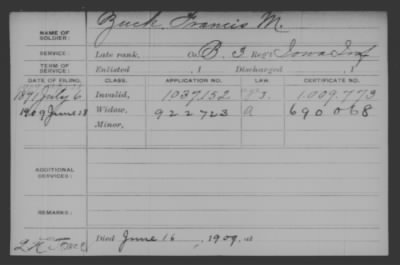 NAME OF SOLDIER: Buck Francis M.
SERVICE: Late rank, Co. B. 3 Reg't Iowa Inf
TERM OF SERVICE: Enlisted , 1 Discharged , 1
DATE OF FILING. CLASS. APPLICATION NO. LAW. CERTIFICATE NO.
1891 July 6 Invalid, 1037,152 1.009.773
1909 June 28 Widow, 922723 690068
Minor,
ADDITIONAL SERVICES:
REMARKS:
Died June 16, 1909, at